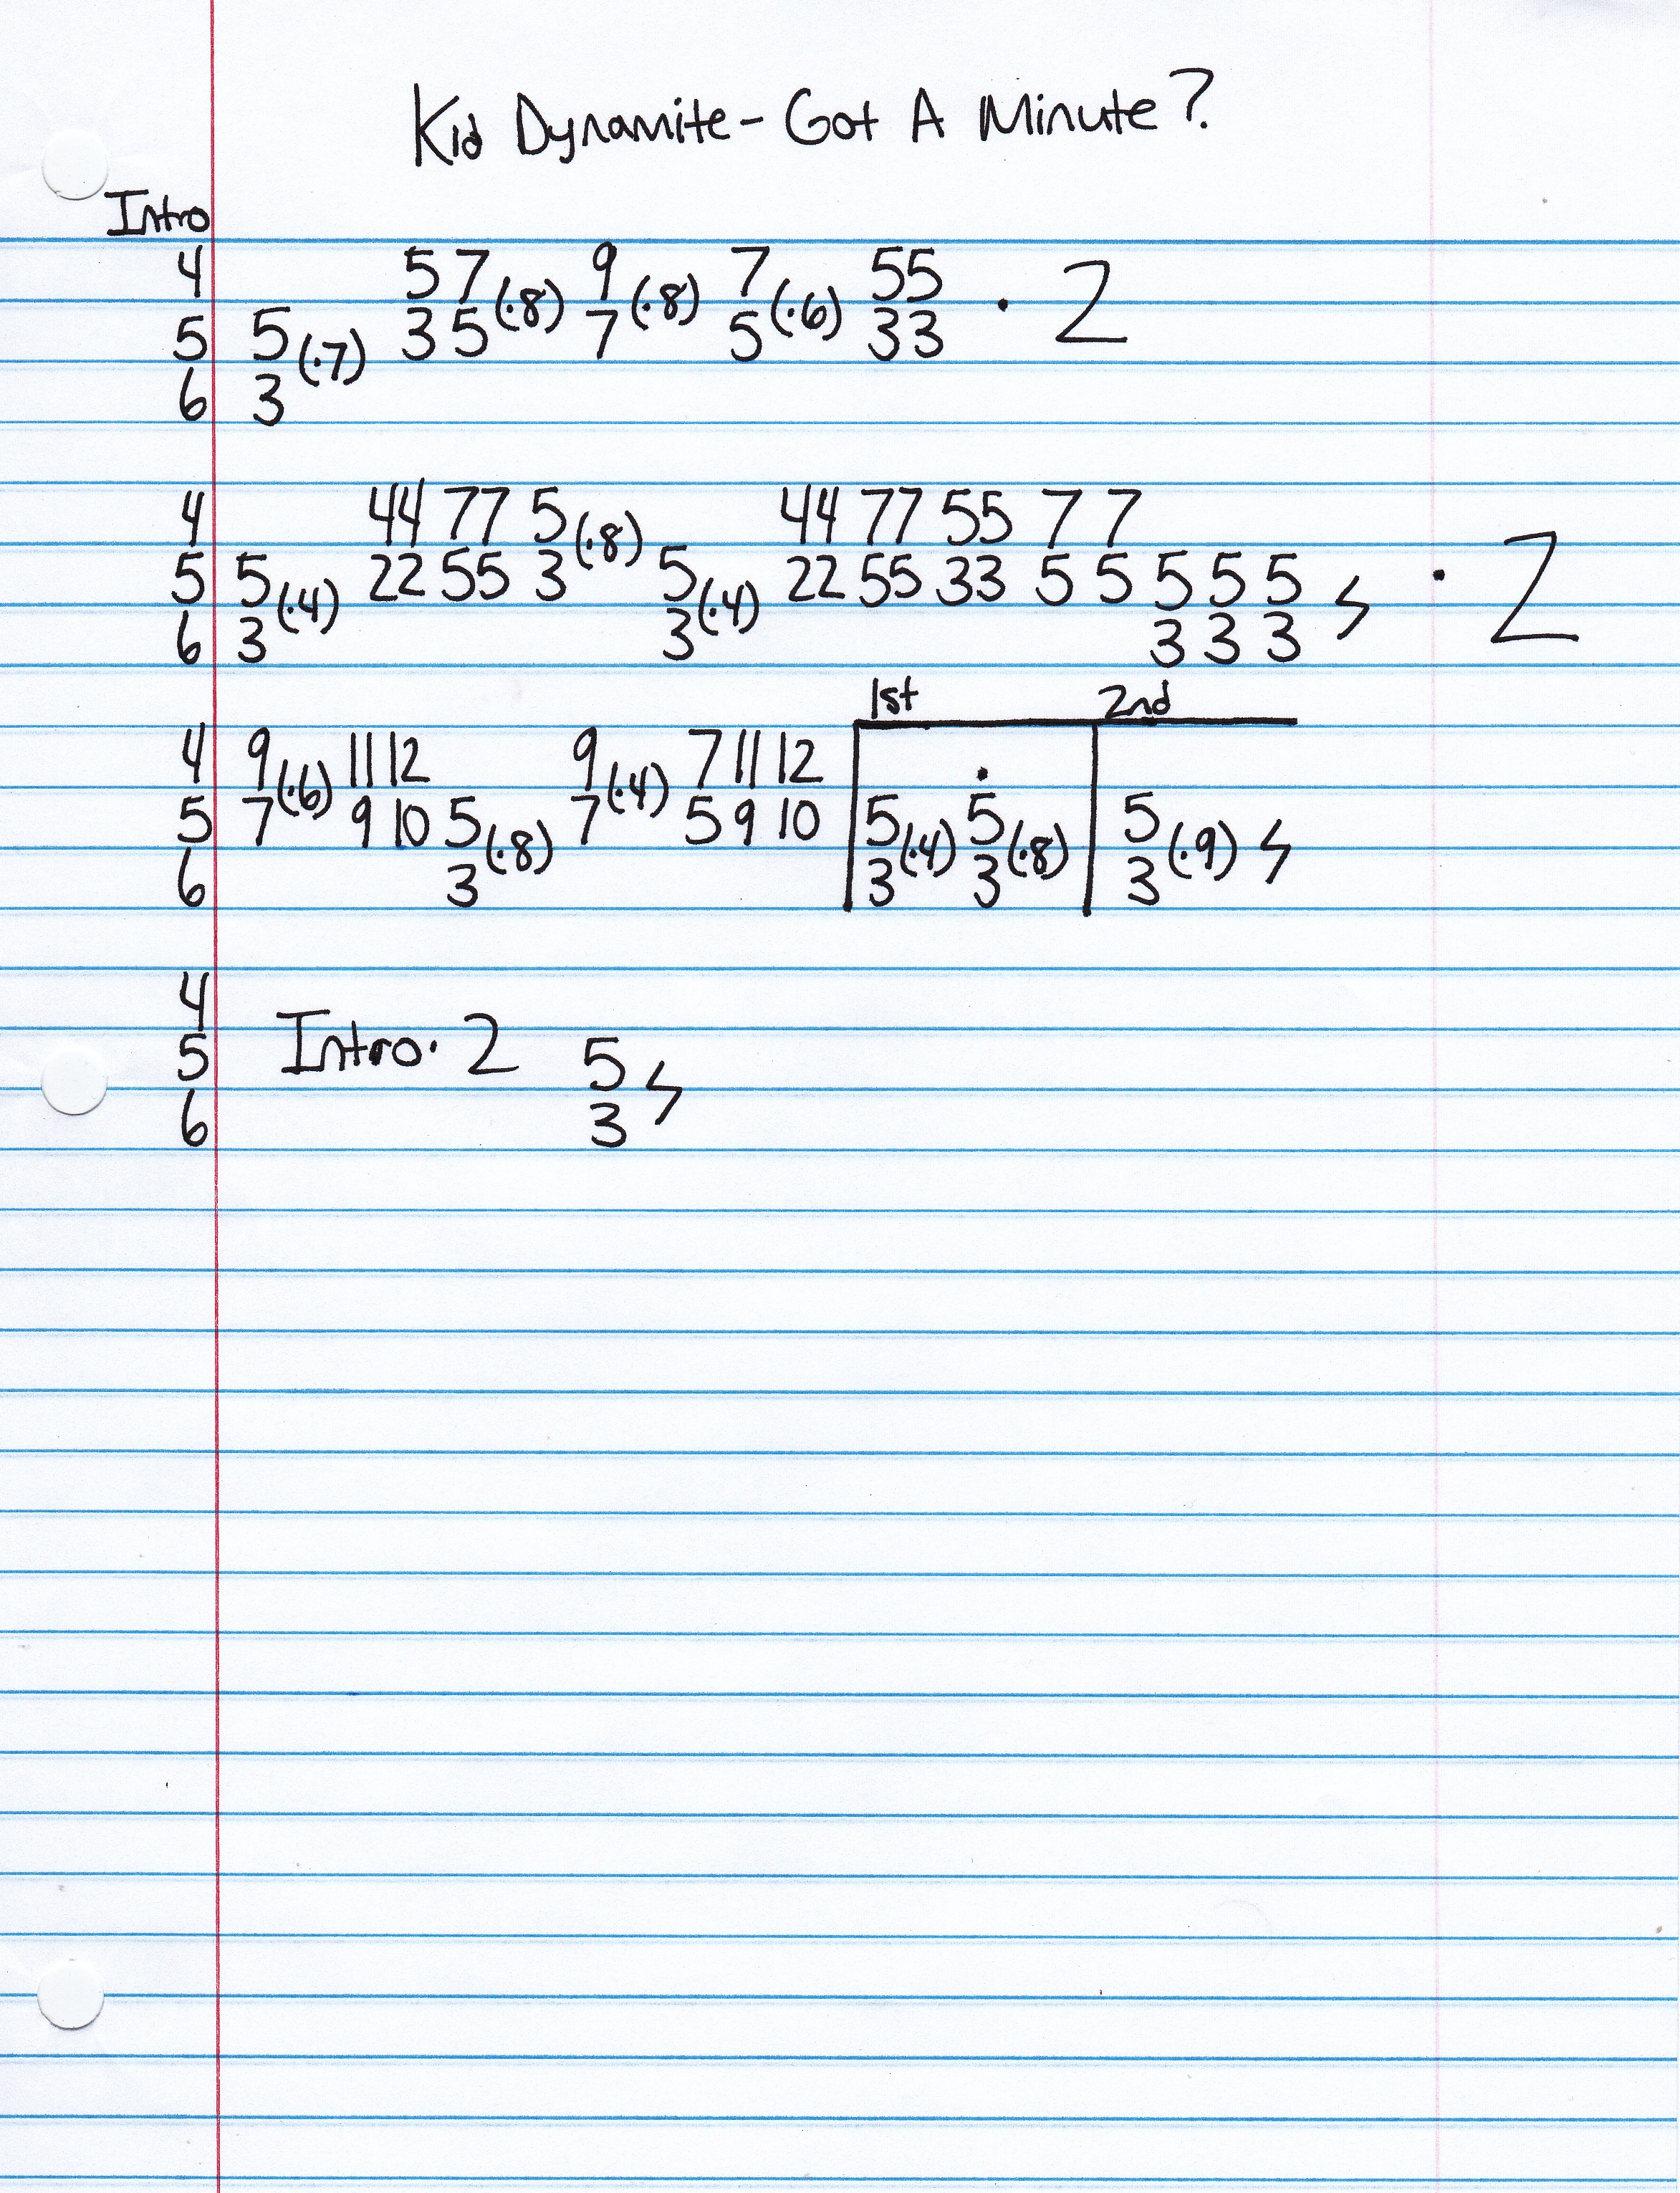 Kid Dynamite - Got A Minute?
Intro
4 5 7(·8) 9(·8) 7(·6) 55 · 2
5 5(·7) 3 5 7 5 33
6 3
4 44 77 5(·8) 44 77 55 7 7
5 5(·4) 22 55 3 5(·4) 22 55 33 5 5 5 5 5 · 2
6 3 3 3 3 3
1st 2nd
4 9(·6) 11 12 9(·4) 7 11 12
5 7 9 10 5(·8) 7 5 9 10 5(·4) 5(·8) 5(·9)
6 3 3 3 3
4
5 Intro · 2 5
6 3